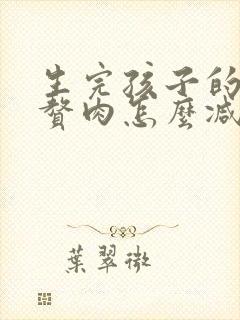 生完孩子的
贅肉怎麼減
葉翠微